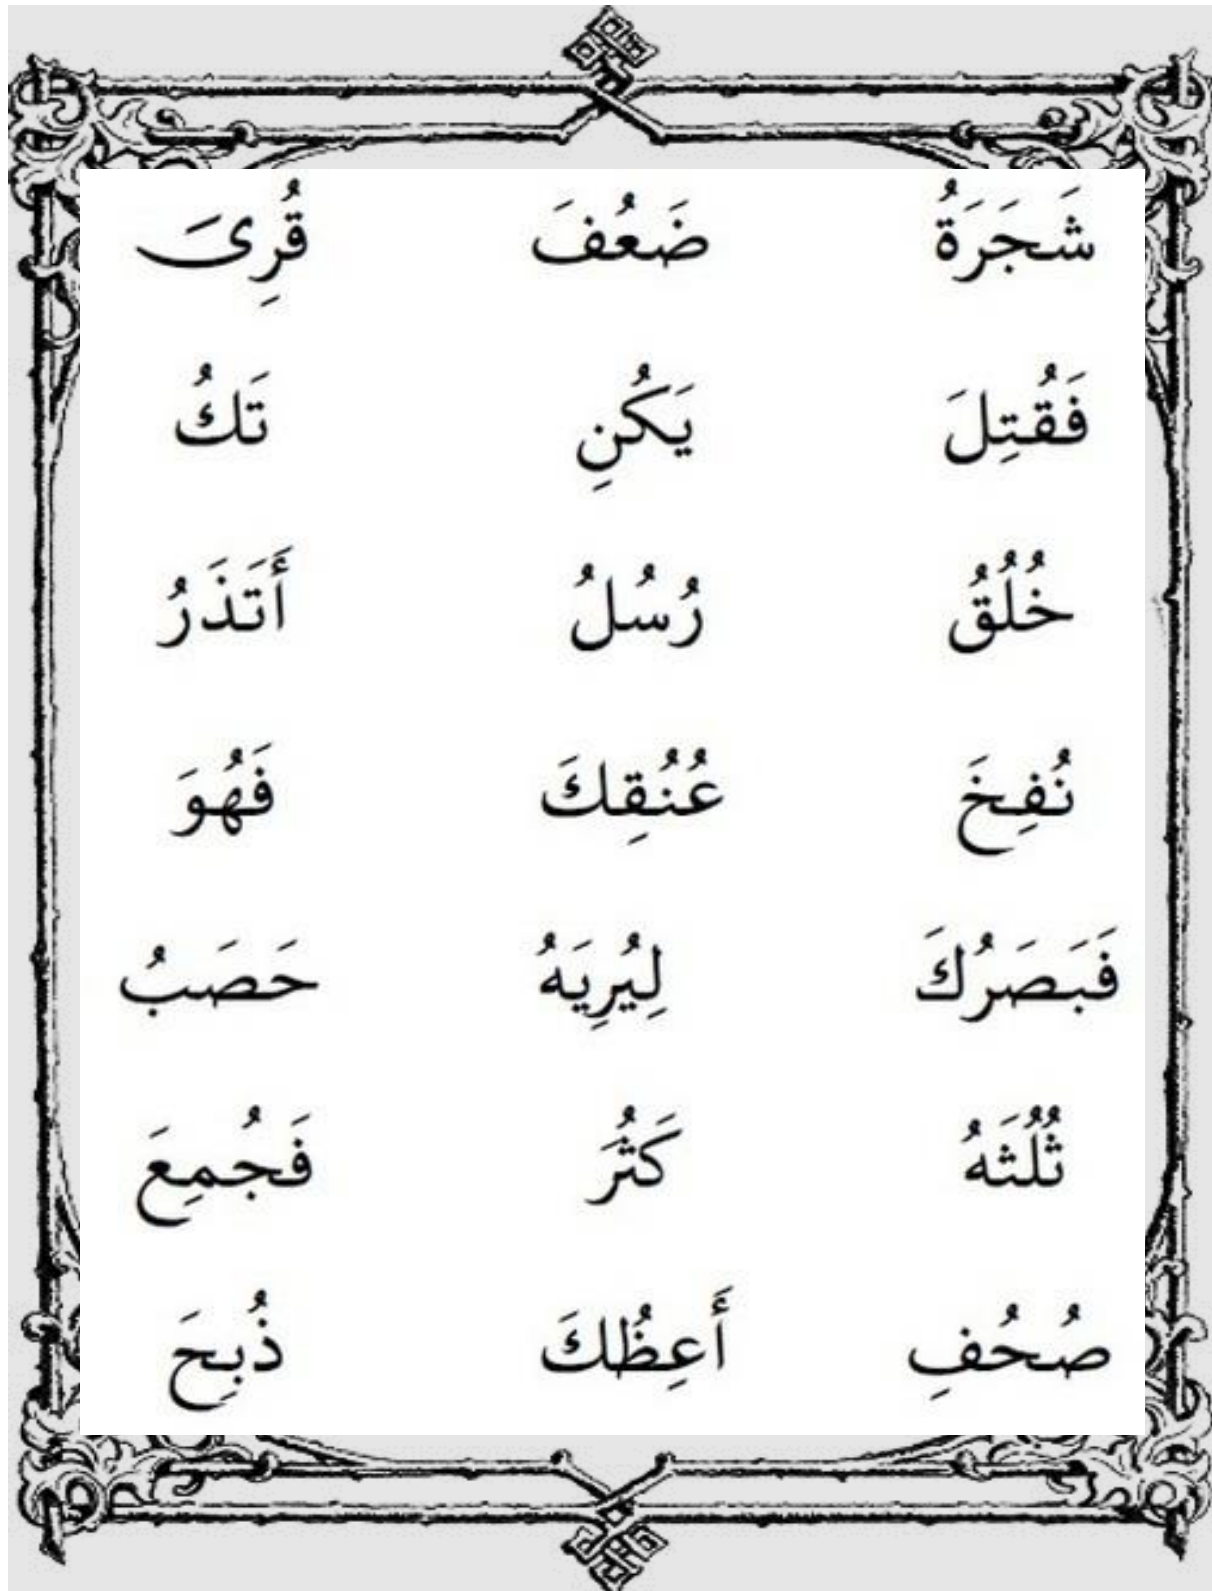 شَجَرَةُ ضَعُفَ قُرِىَ
فَقُتِلَ يَكُنِ تَكُ
خُلُقُ رُسُلُ أَتَذَرُ
نُفِخَ عُنُقِكَ فَهُوَ
فَبَصَرُكَ لِيُرِيَهُ حَصَبُ
ثُلُثَهُ كَثُرَ فَجُمِعَ
صُحُفِ أَعِظُكَ ذُبِحَ